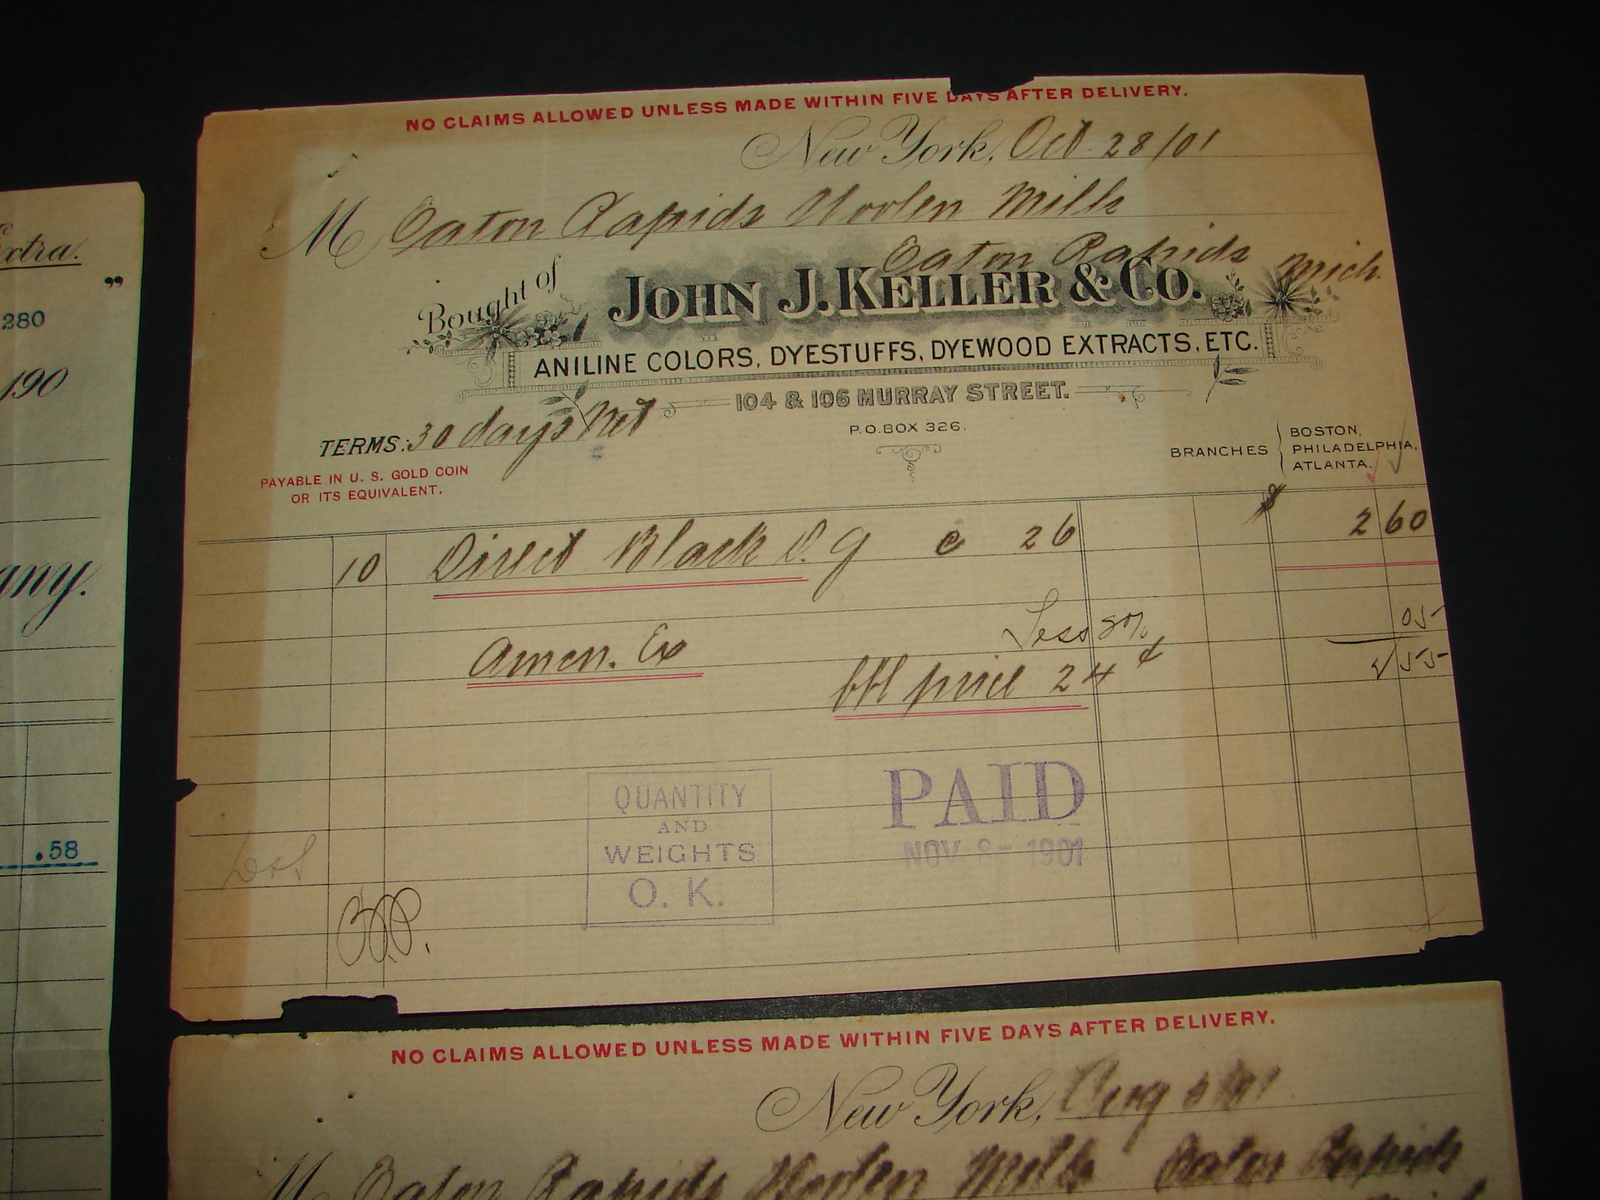 ctra.
"
280
190
any.
.58
NO CLAIMS ALLOWED UNLESS MADE WITHIN FIVE DAYS AFTER DELIVERY.
New York, Oct 28/01
M Eaton Rapids Woolen Mills
Eaton Rapids Mich.
Bought of JOHN J. KELLER & CO.
ANILINE COLORS, DYESTUFFS, DYEWOOD EXTRACTS, ETC.
104 & 106 MURRAY STREET.
TERMS: 30 days Net
P.O. BOX 326.
PAYABLE IN U. S. GOLD COIN
OR ITS EQUIVALENT.
BRANCHES
BOSTON,
PHILADELPHIA,
ATLANTA.
10 Direct Black D. G c 26 $ 2 60
Less 2% 05
Amen. Ex
bbl price 24 ¢ 2 55
QUANTITY
AND
WEIGHTS
O. K.
PAID
NOV 8- 1901
NO CLAIMS ALLOWED UNLESS MADE WITHIN FIVE DAYS AFTER DELIVERY.
New York, Aug
M Eaton Rapids Woolen Mills Eaton Rapids